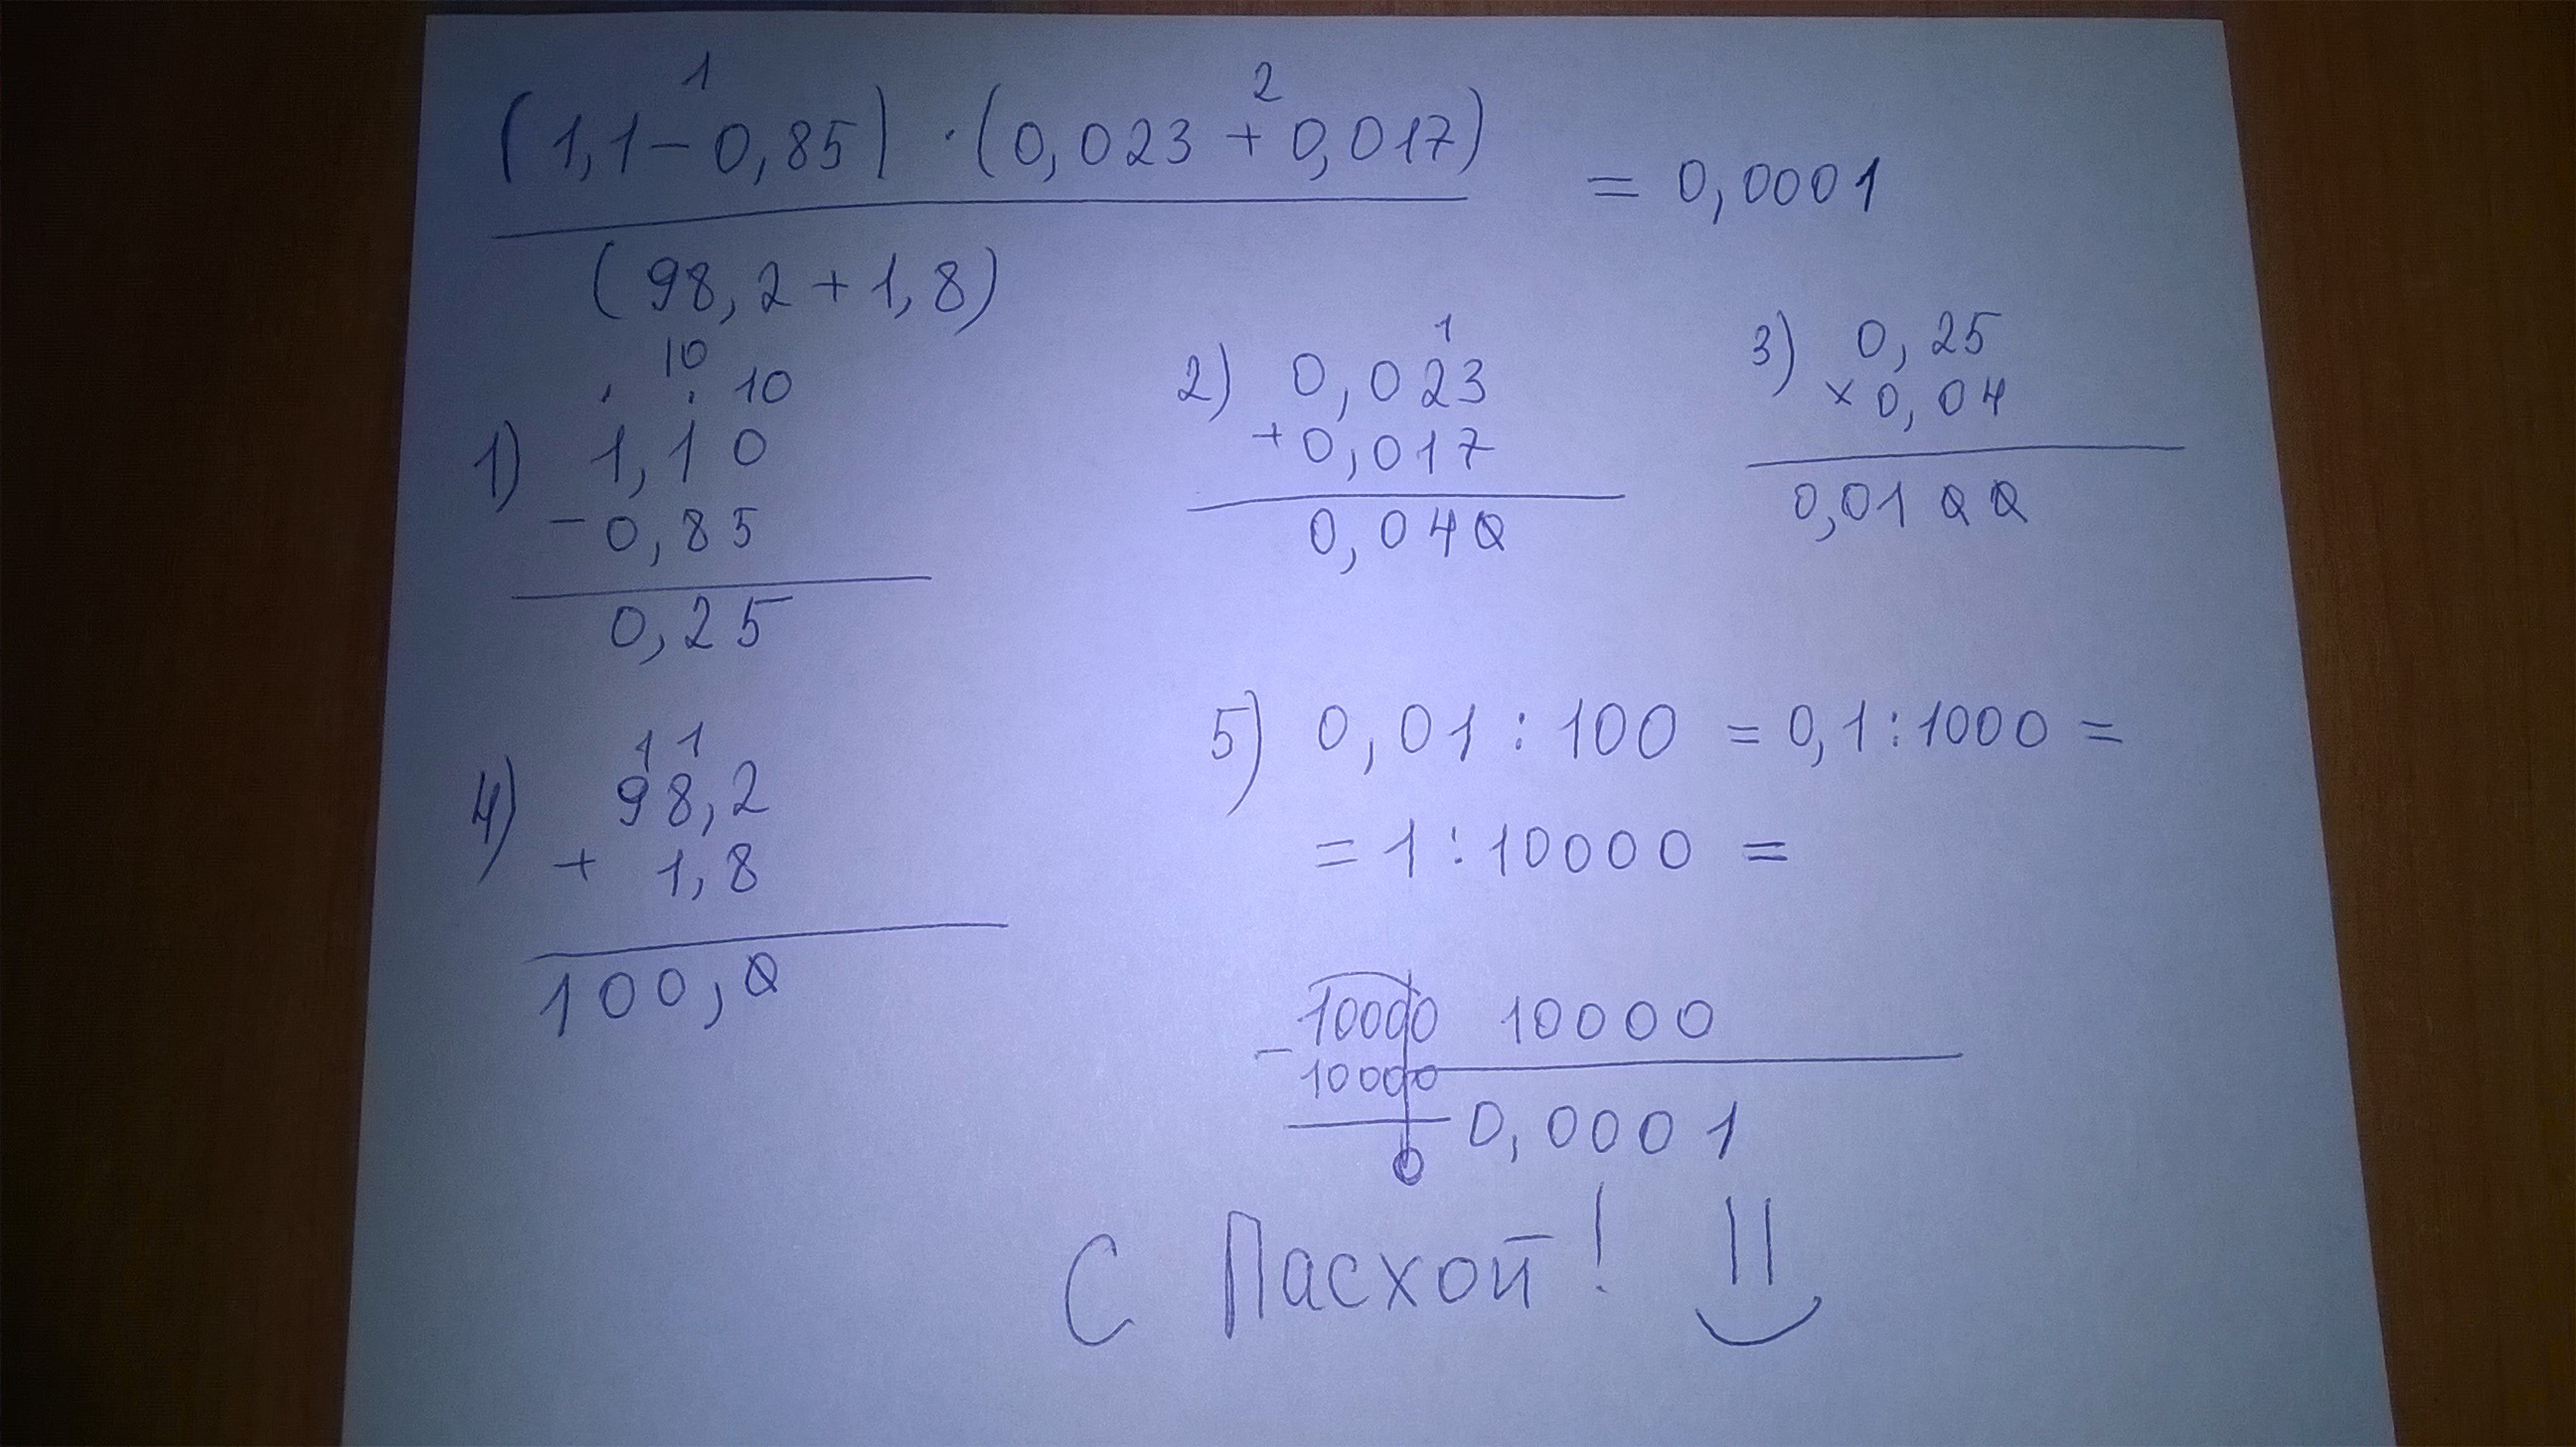 1 2
(1,1-0,85) · (0,023 + 0,017)
= 0,0001
(98,2 + 1,8)
10
. . 10
1) 1,10
- 0,85
0,25
1
2) 0,023
+ 0,017
0,040
3) 0,25
x 0,04
0,0100
1 1
4) 98,2
+ 1,8
100,0
5) 0,01 : 100 = 0,1 : 1000 =
= 1 : 10000 =
10000 10000
- 10000
0,0001
0
С Пасхой!